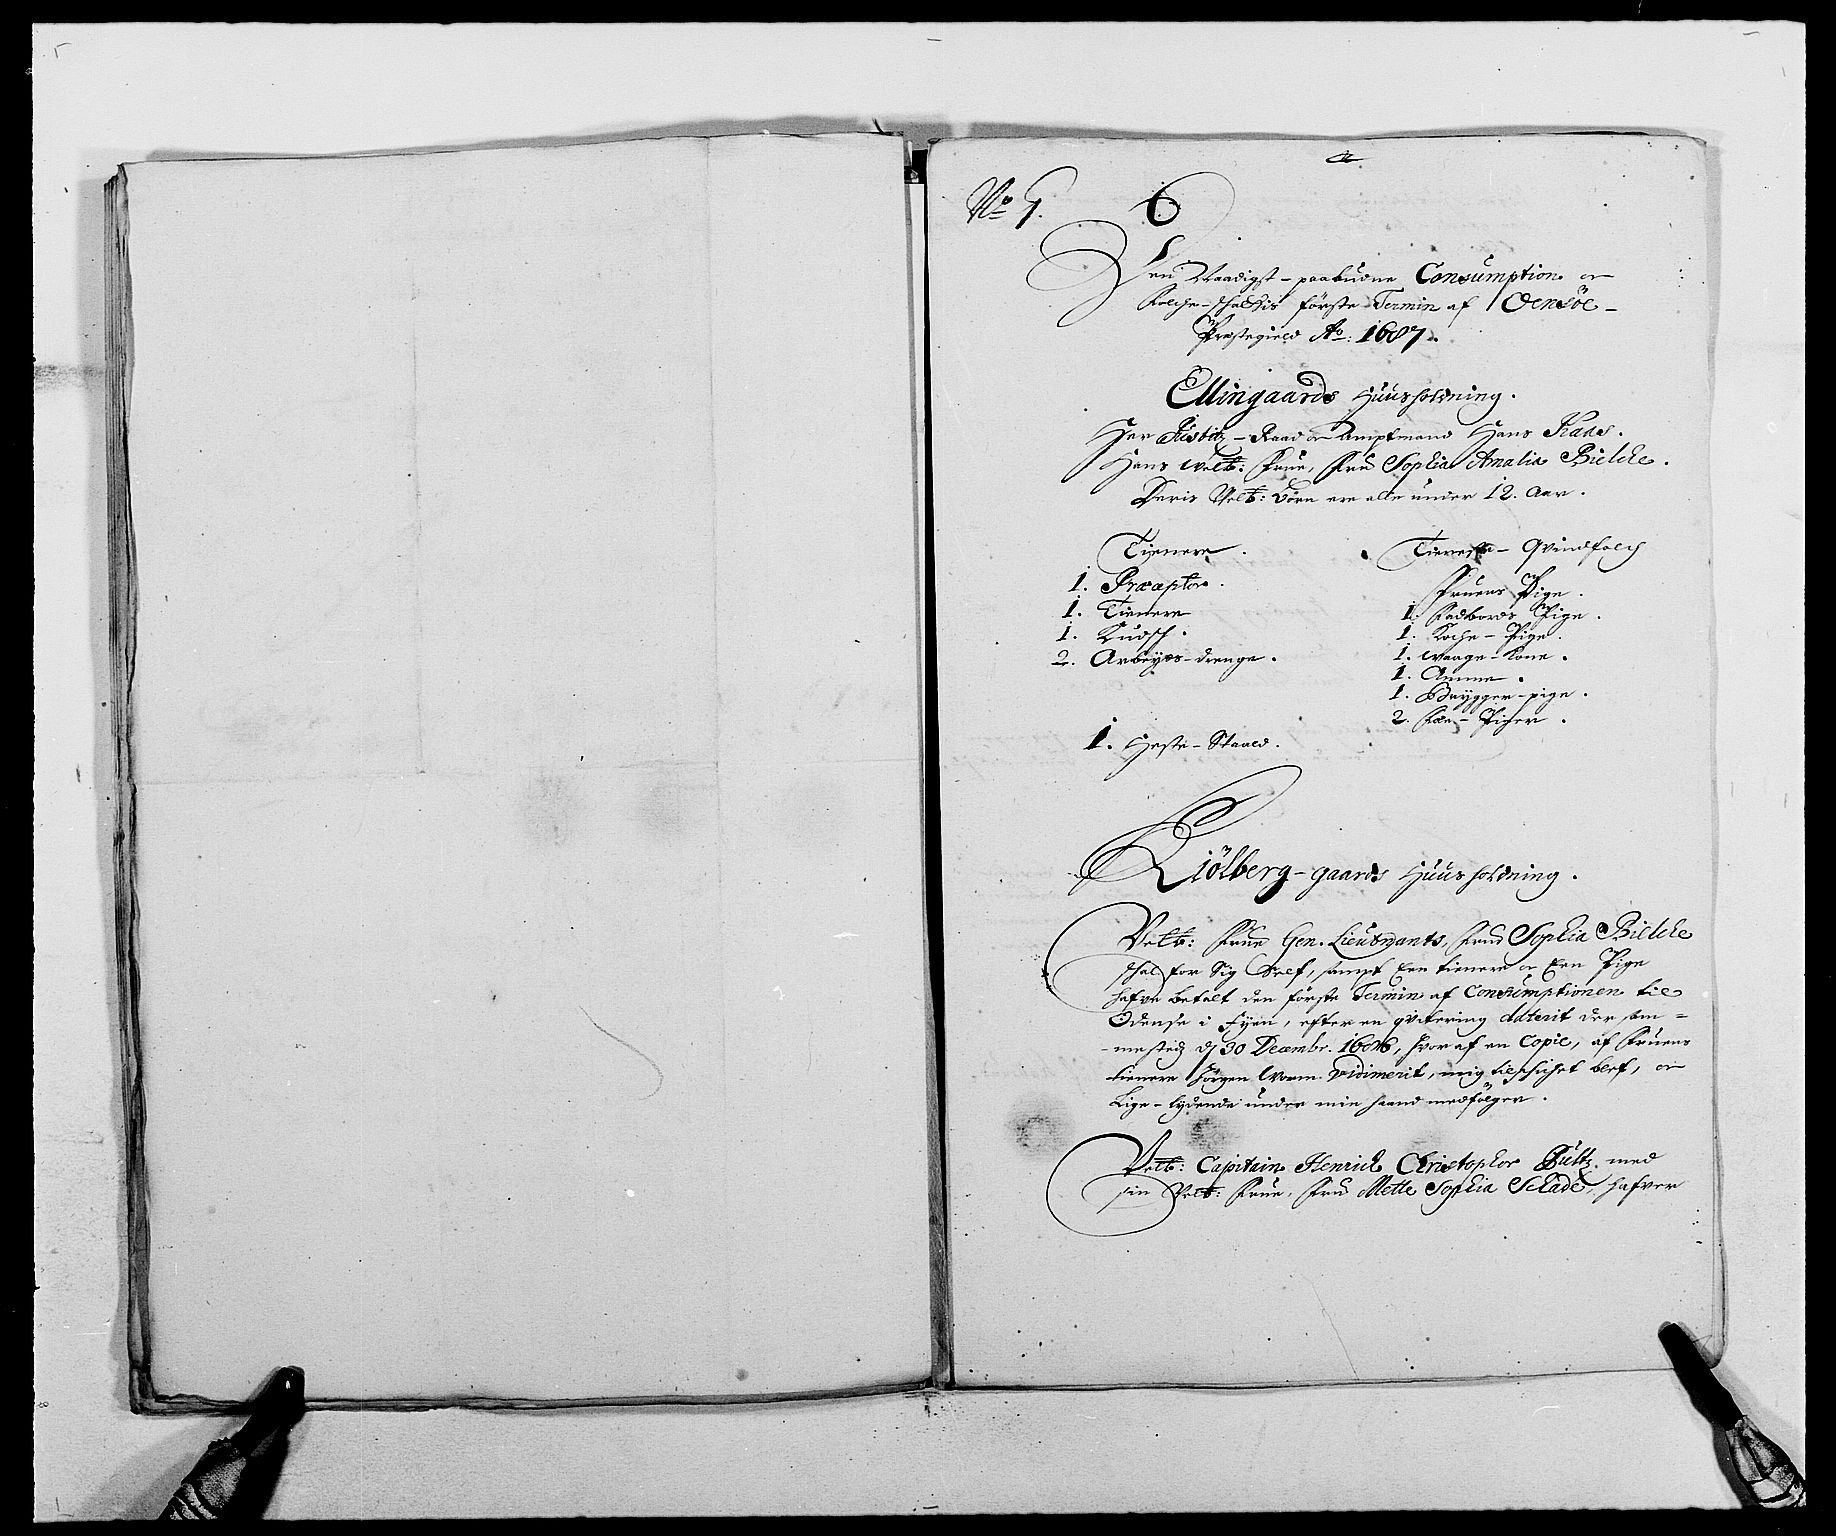 No 1. 6
Den Naadigst-paabudne Consumption oc
Folche-schattis förste Termin af Onsöe-
Præstegield Ao: 1687.
Ellingaards Huusholdning.
Her Justitz-Raad oc Amptmand Hans Kaas.
Hans Velb: Frue, Fru Sophia Amalia Bielche.
Deris Velb: börn ere alle under 12. Aar.
Tienere.
1. Præceptor.
1. Tienere
1. Kudsch.
2. Arbeyds-drenge.
1. Heste-Staald.
Tieniste-Qvindfolch
Fruens Pige.
1. Fadbords Pige.
1. Koche-Pige.
1. Waage-Kone.
1. Amme.
1. Brygger-pige.
2. Fæe-Piger.
Kiölberg-gaards Huusholdning.
Velb: Frue Gen. Lieutnants, Fru Sophia Bielche
schal for Sig Self, sampt Een tienere oc Een Pige
hafve betalt den förste Termin af Consumptionen til
Odense i Fyen, efter en qvitering daterit der sam=
-mested d 30 Decembr. 1686, hvor af en Copie, af Fruens
tienere Jörgen Worm vidimerit, mig tilschichet blef, oc
Lige-lydende under min haand medfölger.
Velb: Capitain Henrich Christopher Bültz. med
sin Velb: Frue, Fru Mette Sophia Schade, hafver